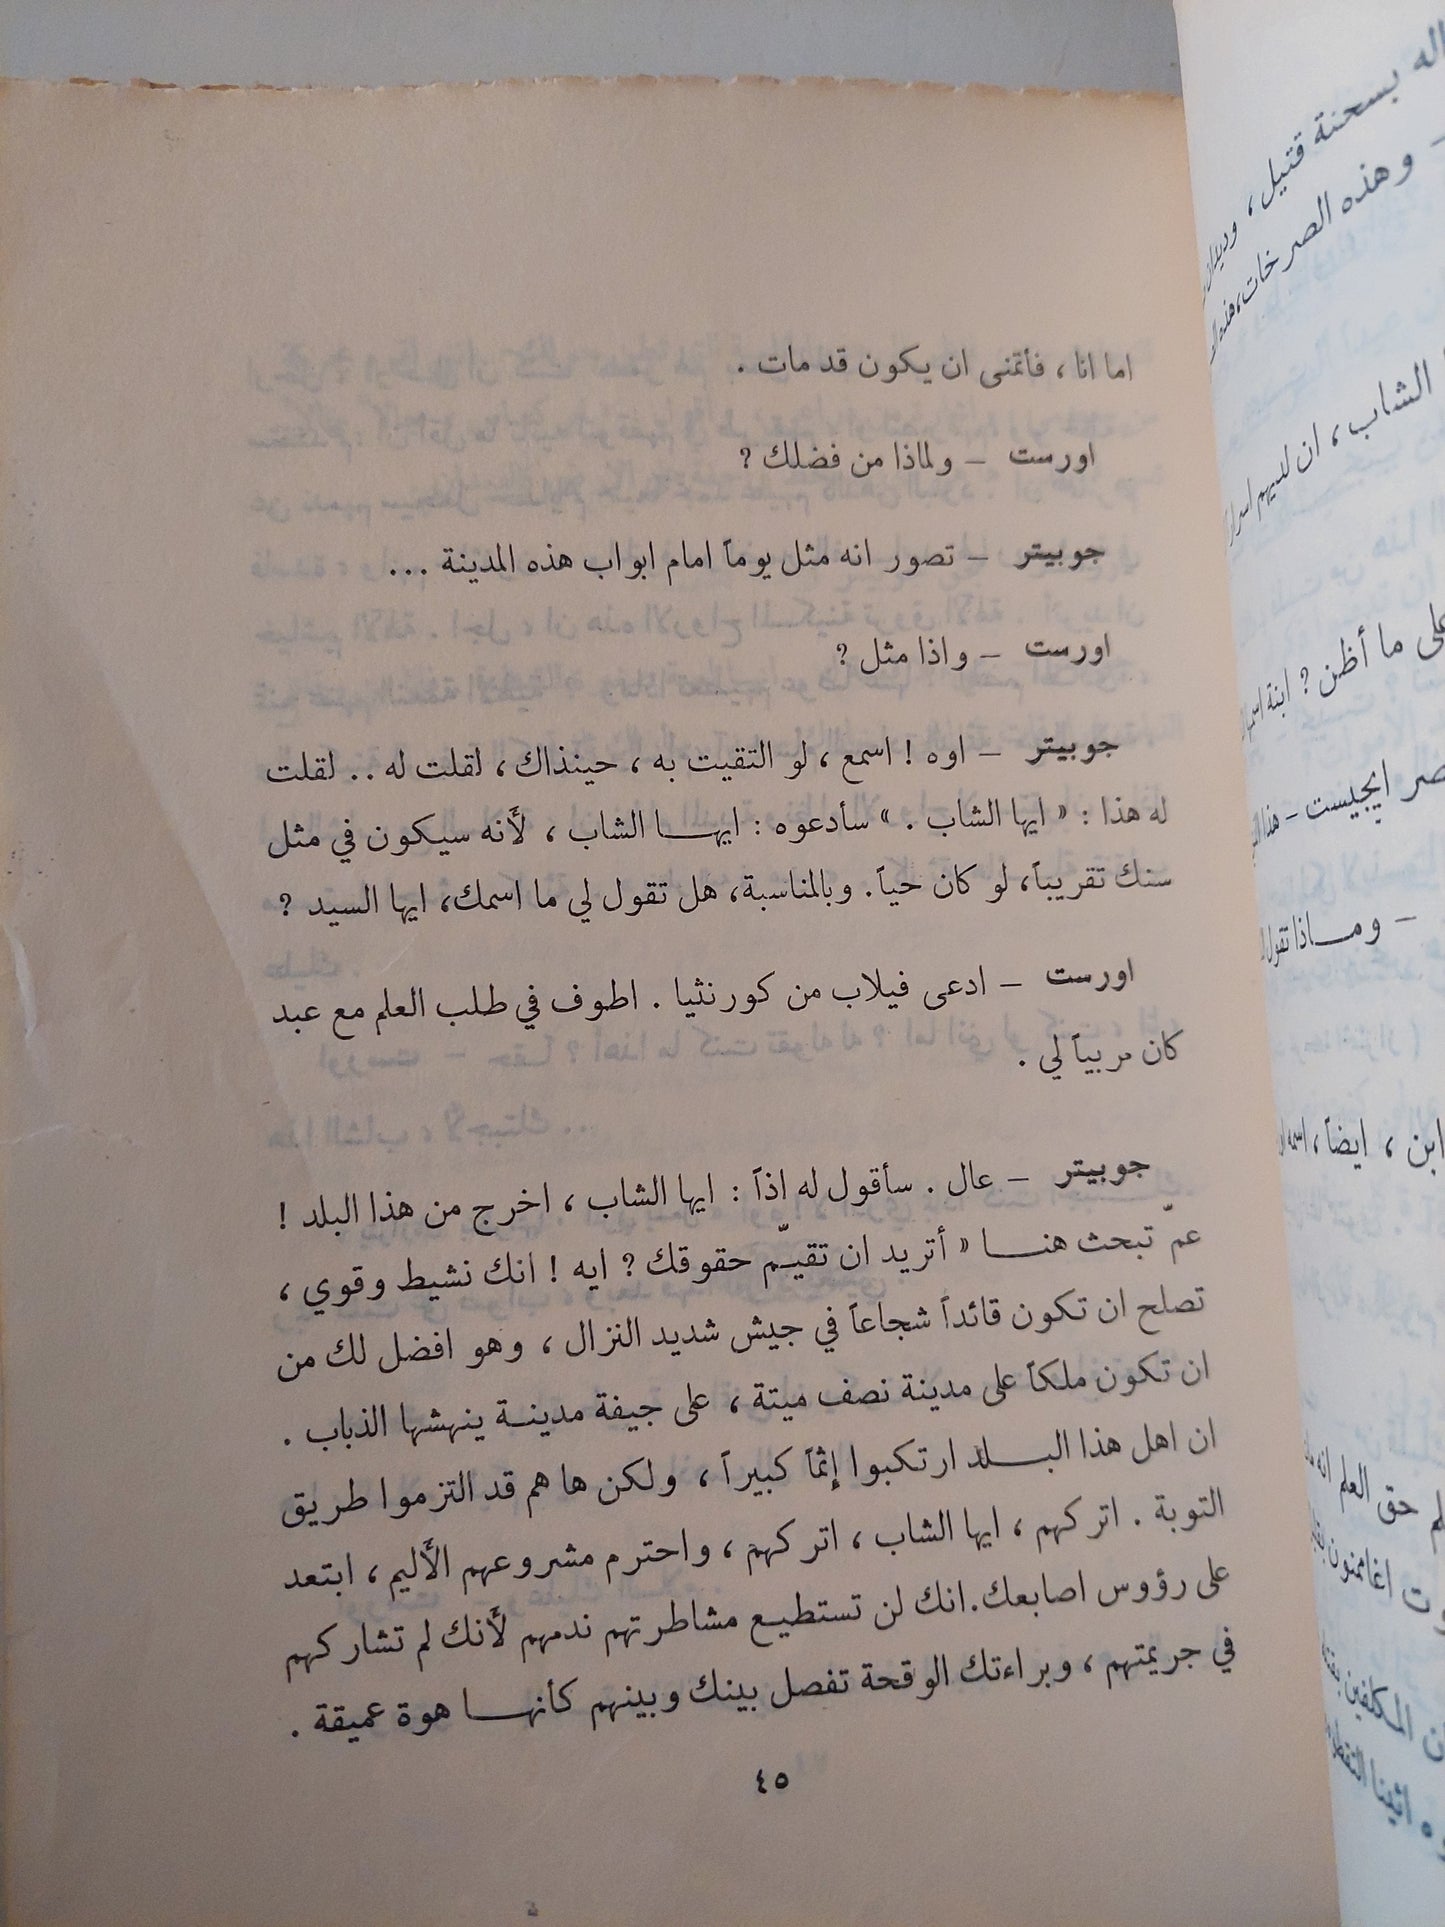 اما انا ، فأتمنى ان يكون قد مات .
اورست – ولماذا من فضلك ؟
جوبيتر – تصور انه مثل يوماً امام ابواب هذه المدينة ...
اورست – واذا مثل ؟
جوبيتر – اوه ! اسمع ، لو التقيت به ، حينذاك ، لقلت له .. لقلت
له هذا : « ايها الشاب . » سأدعوه : ايهـــا الشاب ، لأنه سيكون في مثل
سنك تقريباً، لو كان حياً. وبالمناسبة، هل تقول لي ما اسمك، ايها السيد ؟
اورست – ادعى فيلاب من كورنثيا . اطوف في طلب العلم مع عبد
كان مربياً لي .
جوبيتر – عال . سأقول له اذاً : ايها الشاب ، اخرج من هذا البلد !
عمّ تبحث هنـــا « أتريد ان تقيـّم حقوقك ؟ ايه ! انك نشيط وقوي ،
تصلح ان تكون قائداً شجاعاً في جيش شديد النزال ، وهو افضل لك من
ان تكون ملكاً على مدينة نصف ميتة ، على جيفة مدينــة ينهشها الذباب .
ان اهل هذا البـــلد ارتكبوا إثماً كبيراً ، ولكن ها هم قد التزموا طريق
التوبة . اتركهم ، ايها الشاب ، اتركهم ، واحترم مشروعهم الأليم ، ابتعد
على رؤوس اصابعك.انك لن تستطيع مشاطرتهم ندمهم لأنك لم تشاركهم
في جريمتهم ، وبراءتك الوقحة تفصل بينك وبينهم كأنهـــا هوة عميقة .
٤٥
اله بسحنة قتيل ،
– وهذه الصرخات،
الشاب ، ان لديهم
على ما أظن ؟ ابنة
ايجيست – هذا
– ومـــاذا تقول
ابن ، ايضاً ،
حق العلم
اغاممنون